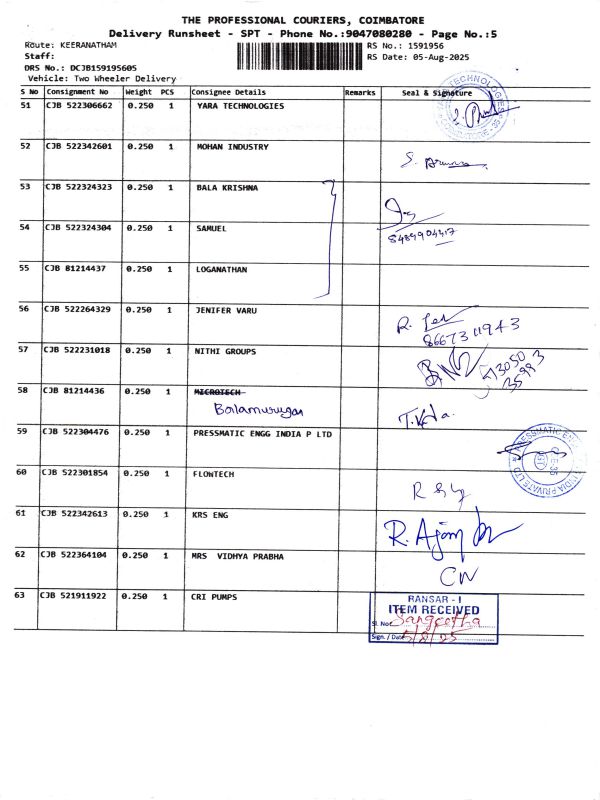 THE PROFESSIONAL COURIERS, COIMBATORE
Delivery Runsheet - SPT - Phone No.:9047080280 - Page No.:5
Route: KEERANATHAM RS No.: 1591956
Staff: RS Date: 05-Aug-2025
DRS No.: DCJB159195605
Vehicle: Two Wheeler Delivery
S No Consignment No Weight PCS Consignee Details Remarks Seal & Signature
51 CJB 522306662 0.250 1 YARA TECHNOLOGIES
52 CJB 522342601 0.250 1 MOHAN INDUSTRY
53 CJB 522324323 0.250 1 BALA KRISHNA
54 CJB 522324304 0.250 1 SAMUEL
8489904417
55 CJB 81214437 0.250 1 LOGANATHAN
56 CJB 522264329 0.250 1 JENIFER VARU
8667311943
57 CJB 522231018 0.250 1 NITHI GROUPS
58 CJB 81214436 0.250 1 MICROTECH
59 CJB 522304476 0.250 1 PRESSMATIC ENGG INDIA P LTD
60 CJB 522301854 0.250 1 FLOWTECH
61 CJB 522342613 0.250 1 KRS ENG
62 CJB 522364104 0.250 1 MRS VIDHYA PRABHA
63 CJB 521911922 0.250 1 CRI PUMPS
RANSAR - I
ITEM RECEIVED
Sl. No: Sangeetha
Sign. / Date 5/8/25